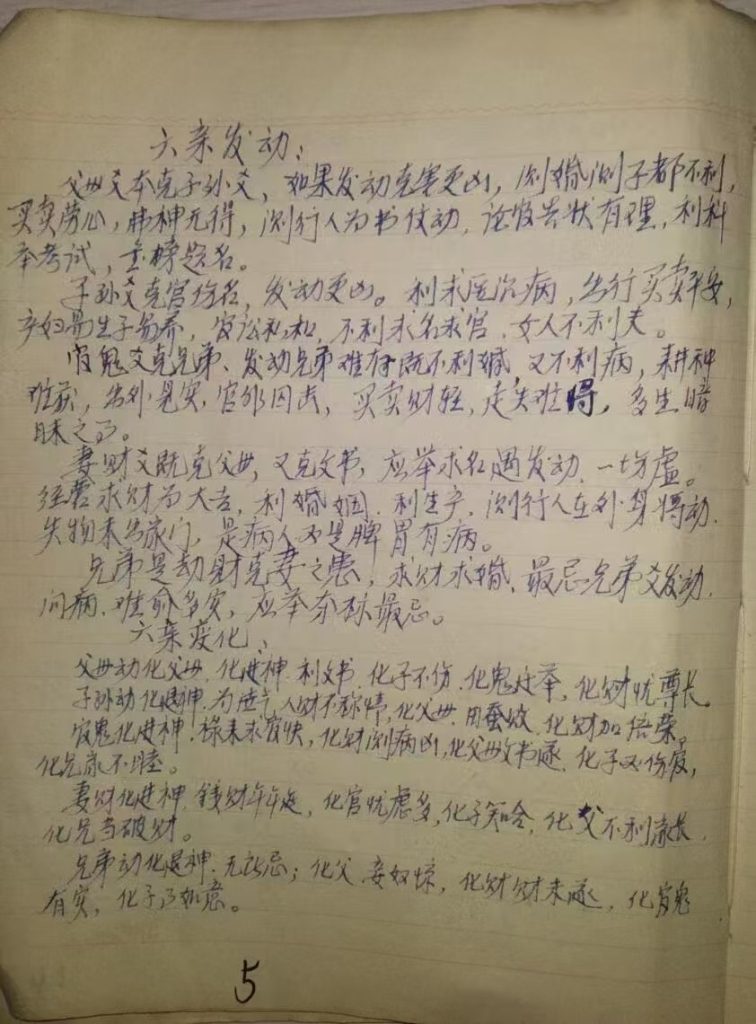 六亲发动:
父母爻本克子孙爻,如果发动克害更凶,测婚测子都不利,
买卖劳心,財神无得,测行人为书信动,论官告状有理,利科
举考试,金榜题名。
子孙爻克官伤名,发动更凶。利求医治病,出行买卖平安,
产妇易生子易养,官讼私和,不利求名求官,女人不利夫。
官鬼爻克兄弟、发动兄弟难存既不利婚,又不利病,耕种
难获,出外见灾,官非因点,买卖财轻,走失难得,多生暗
昧之事。
妻财爻既克父母,又克文书,应举求名遇发动,一切虚。
经营求财为大吉,利婚姻,利生产,测行人在外身将动,
失物未出家门,是病人不是脾胃有病。
兄弟是劫财克妻之患,求财求婚,最忌兄弟爻发动,
问病,难愈多灾,应举夺标最忌。
六亲变化:
父母动化父母,化进神利文书,化子不伤,化鬼迁举,化财忧尊长。
子孙动化退神,为进人财不称情,化父母,田蚕败,化财加倍荣。
官鬼化进神,禄来求官快,化财测病凶,化父母文书遂,化子又伤爱,
化兄家不睦。
妻财化进神,钱财年年进,化官忧虑多,化子知合,化父不利家长,
化兄当破财。
兄弟动化退神,无所忌;化父,妾奴惊,化财财未遂,化官鬼
有灾,化子事如意。
5